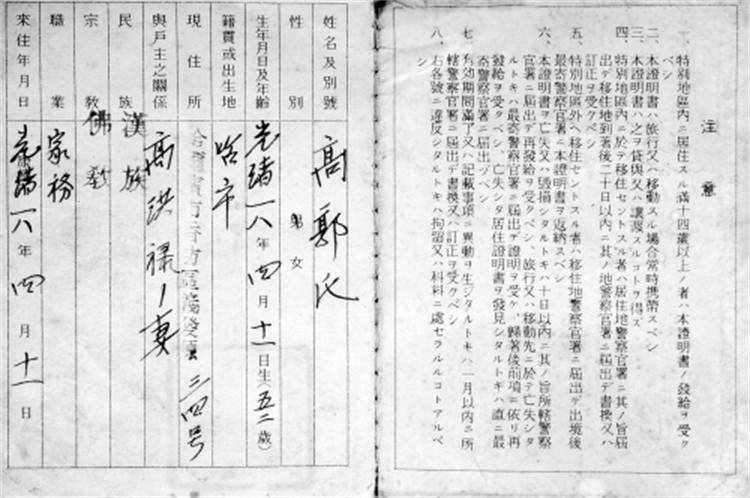 注意
一、特別地區內ニ居住スル滿十四歲以上ノ者ハ本證明書ノ發給ヲ受ク
ベシ
二、本證明書ハ旅行又ハ移動スル場合當時携帶スベシ
三、本證明書ハ之ヲ貸與又ハ讓渡スルコトヲ得ズ
四、特別地區內ニ於テ移住セントスル者ハ居住地警察官署ニ其ノ旨屆
出デ移住地到著後二十日以內ニ其ノ地警察官署ニ屆出デ書換又ハ
訂正ヲ受クベシ
五、特別地區外ヘ移住セントスル者ハ移住地警察官署ニ屆出デ出境後
最寄警察官署ニ本證明書ヲ返納スベシ
六、本證明書ヲ亡失又ハ毀損シタルトキハ十日以內ニ其ノ旨所轄警察
官署ニ屆出デ再發給ヲ受クベシ、旅行又ハ移動先ニ於テ亡失シタ
ルトキハ最寄警察官署ニ屆出デ證明ヲ受ケ、歸著後前項ニ依リ再
發給ヲ受クベシ、亡失シタ居住證明書ヲ發見シタルトキハ直ニ最
寄警察官署ニ屆出ヅベシ
七、有効期間滿了又ハ記載事項ニ異動ヲ生ジタルトキハ一月以內ニ所
轄警察官署ニ屆出デ書換又ハ訂正ヲ受クベシ
八、右各號ニ違反シタルトキハ拘留又ハ科料ニ處セラルルコトアルベ
シ
姓名及別號 高郭氏
性別 男女
生年月日及年齡 光緒一八年四月十一日生(五二歲)
籍貫或出生地 哈市
現住所 三四号
與戶主之關係 高洪祿ノ妻
民族 漢族
宗教 佛教
職業 家務
來住年月日 光緒一八年四月十一日